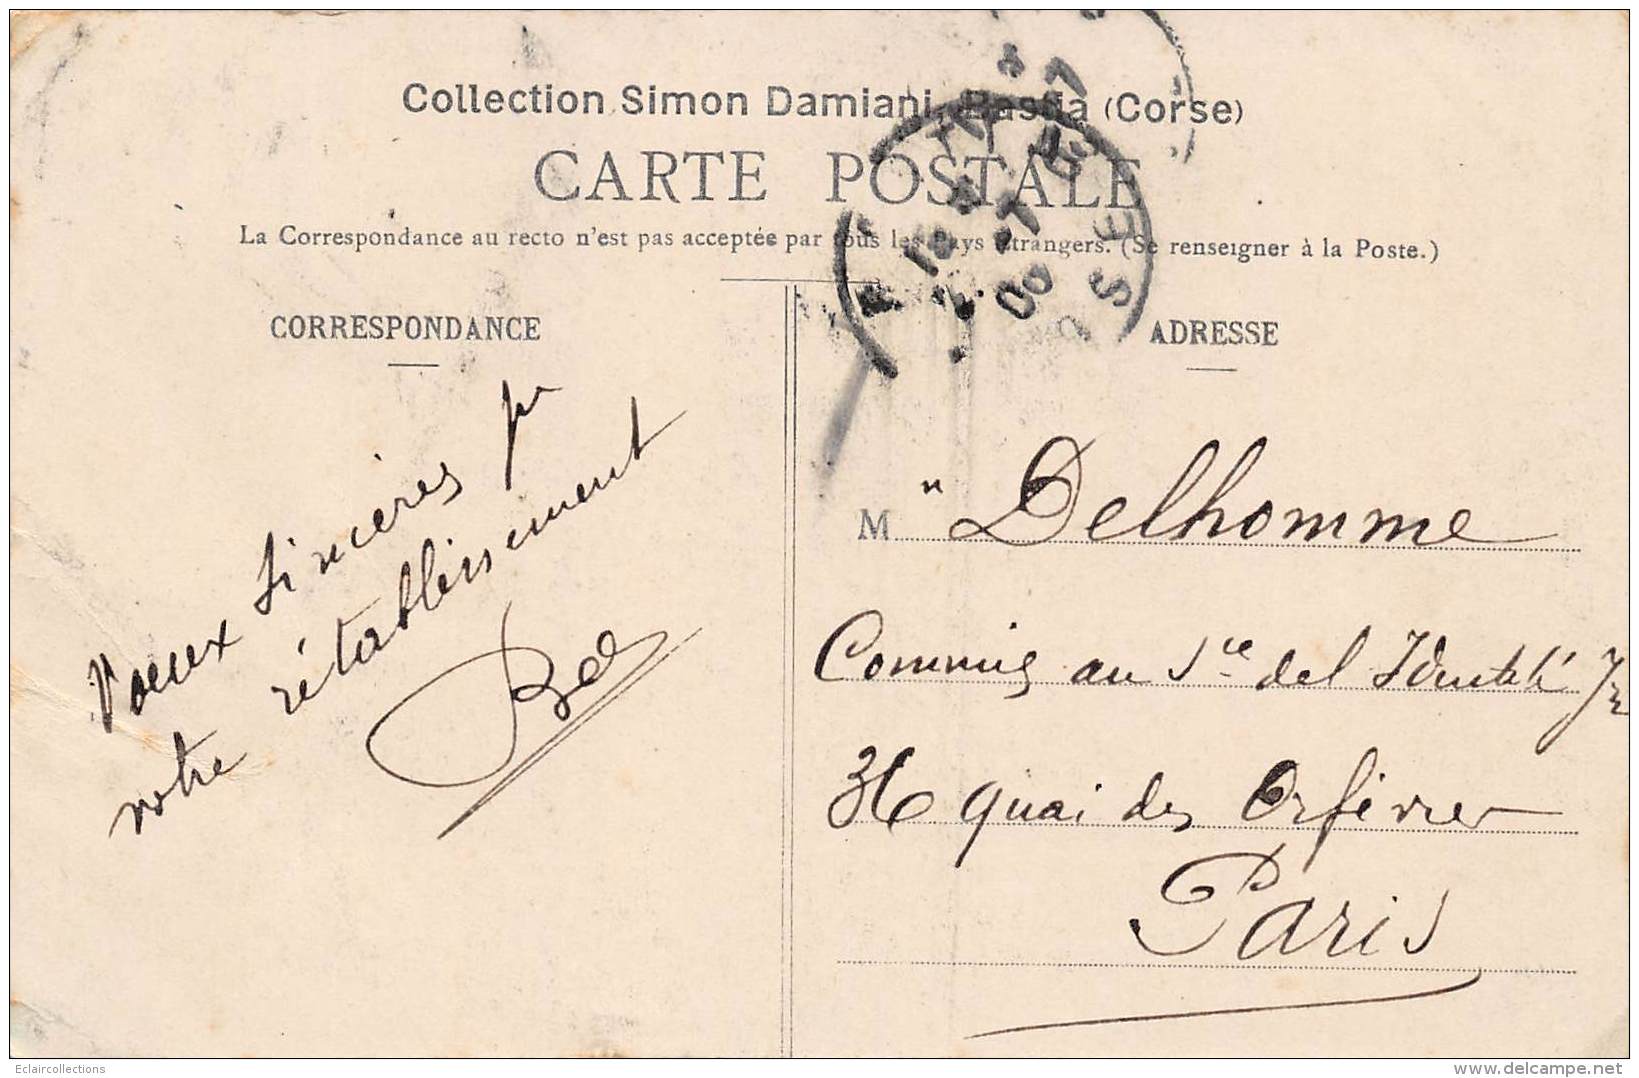 Collection Simon Damiani, Bastia (Corse)
CARTE POSTALE
La Correspondance au recto n'est pas acceptée par tous les Pays étrangers. (Se renseigner à la Poste.)
CORRESPONDANCE
Voeux sincères pr
votre rétablissement
ADRESSE
M " Delhomme
Commis au Sce de l'Identité Jre
36 quai des Orfèvres
Paris
Eclaircollections
delcampe.net